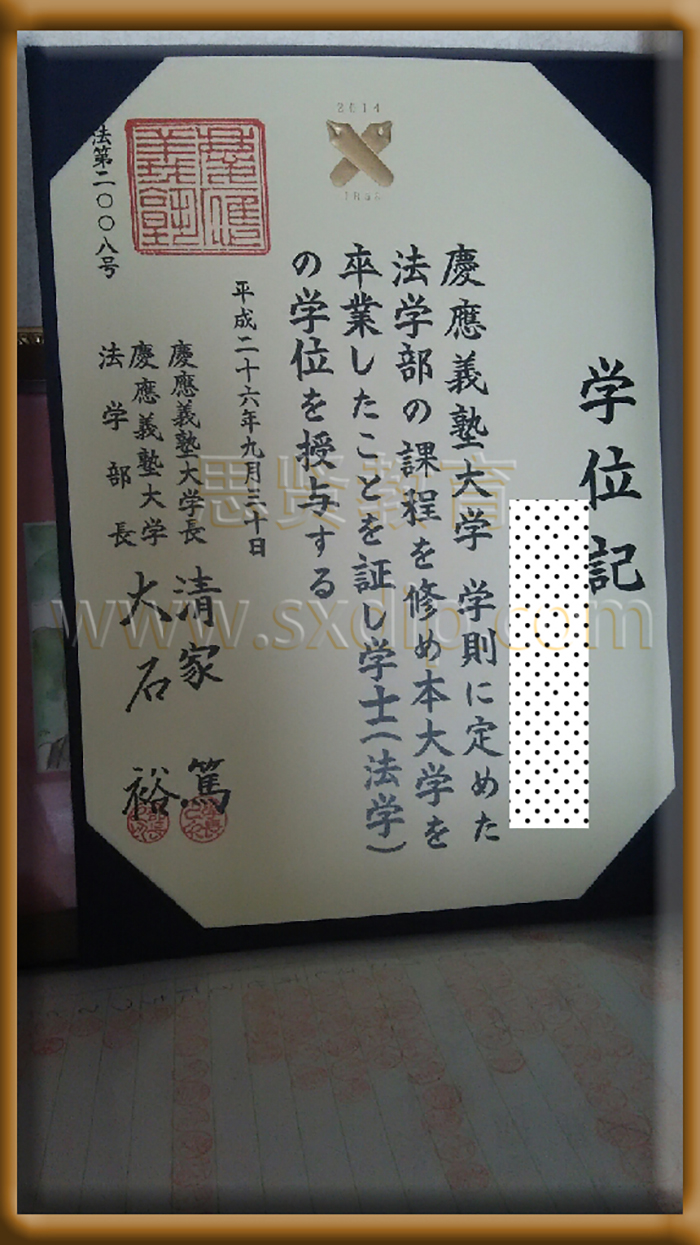 学位記
慶應義塾大学 学則に定めた
法学部の課程を修め本大学を
卒業したことを証し学士(法学)
の学位を授与する
平成二十六年九月三十日
慶應義塾大学長 清家 篤
慶應義塾大学
法学部長 大石 裕
法第二〇〇八号
2014
思贤教育
www.sxdip.com